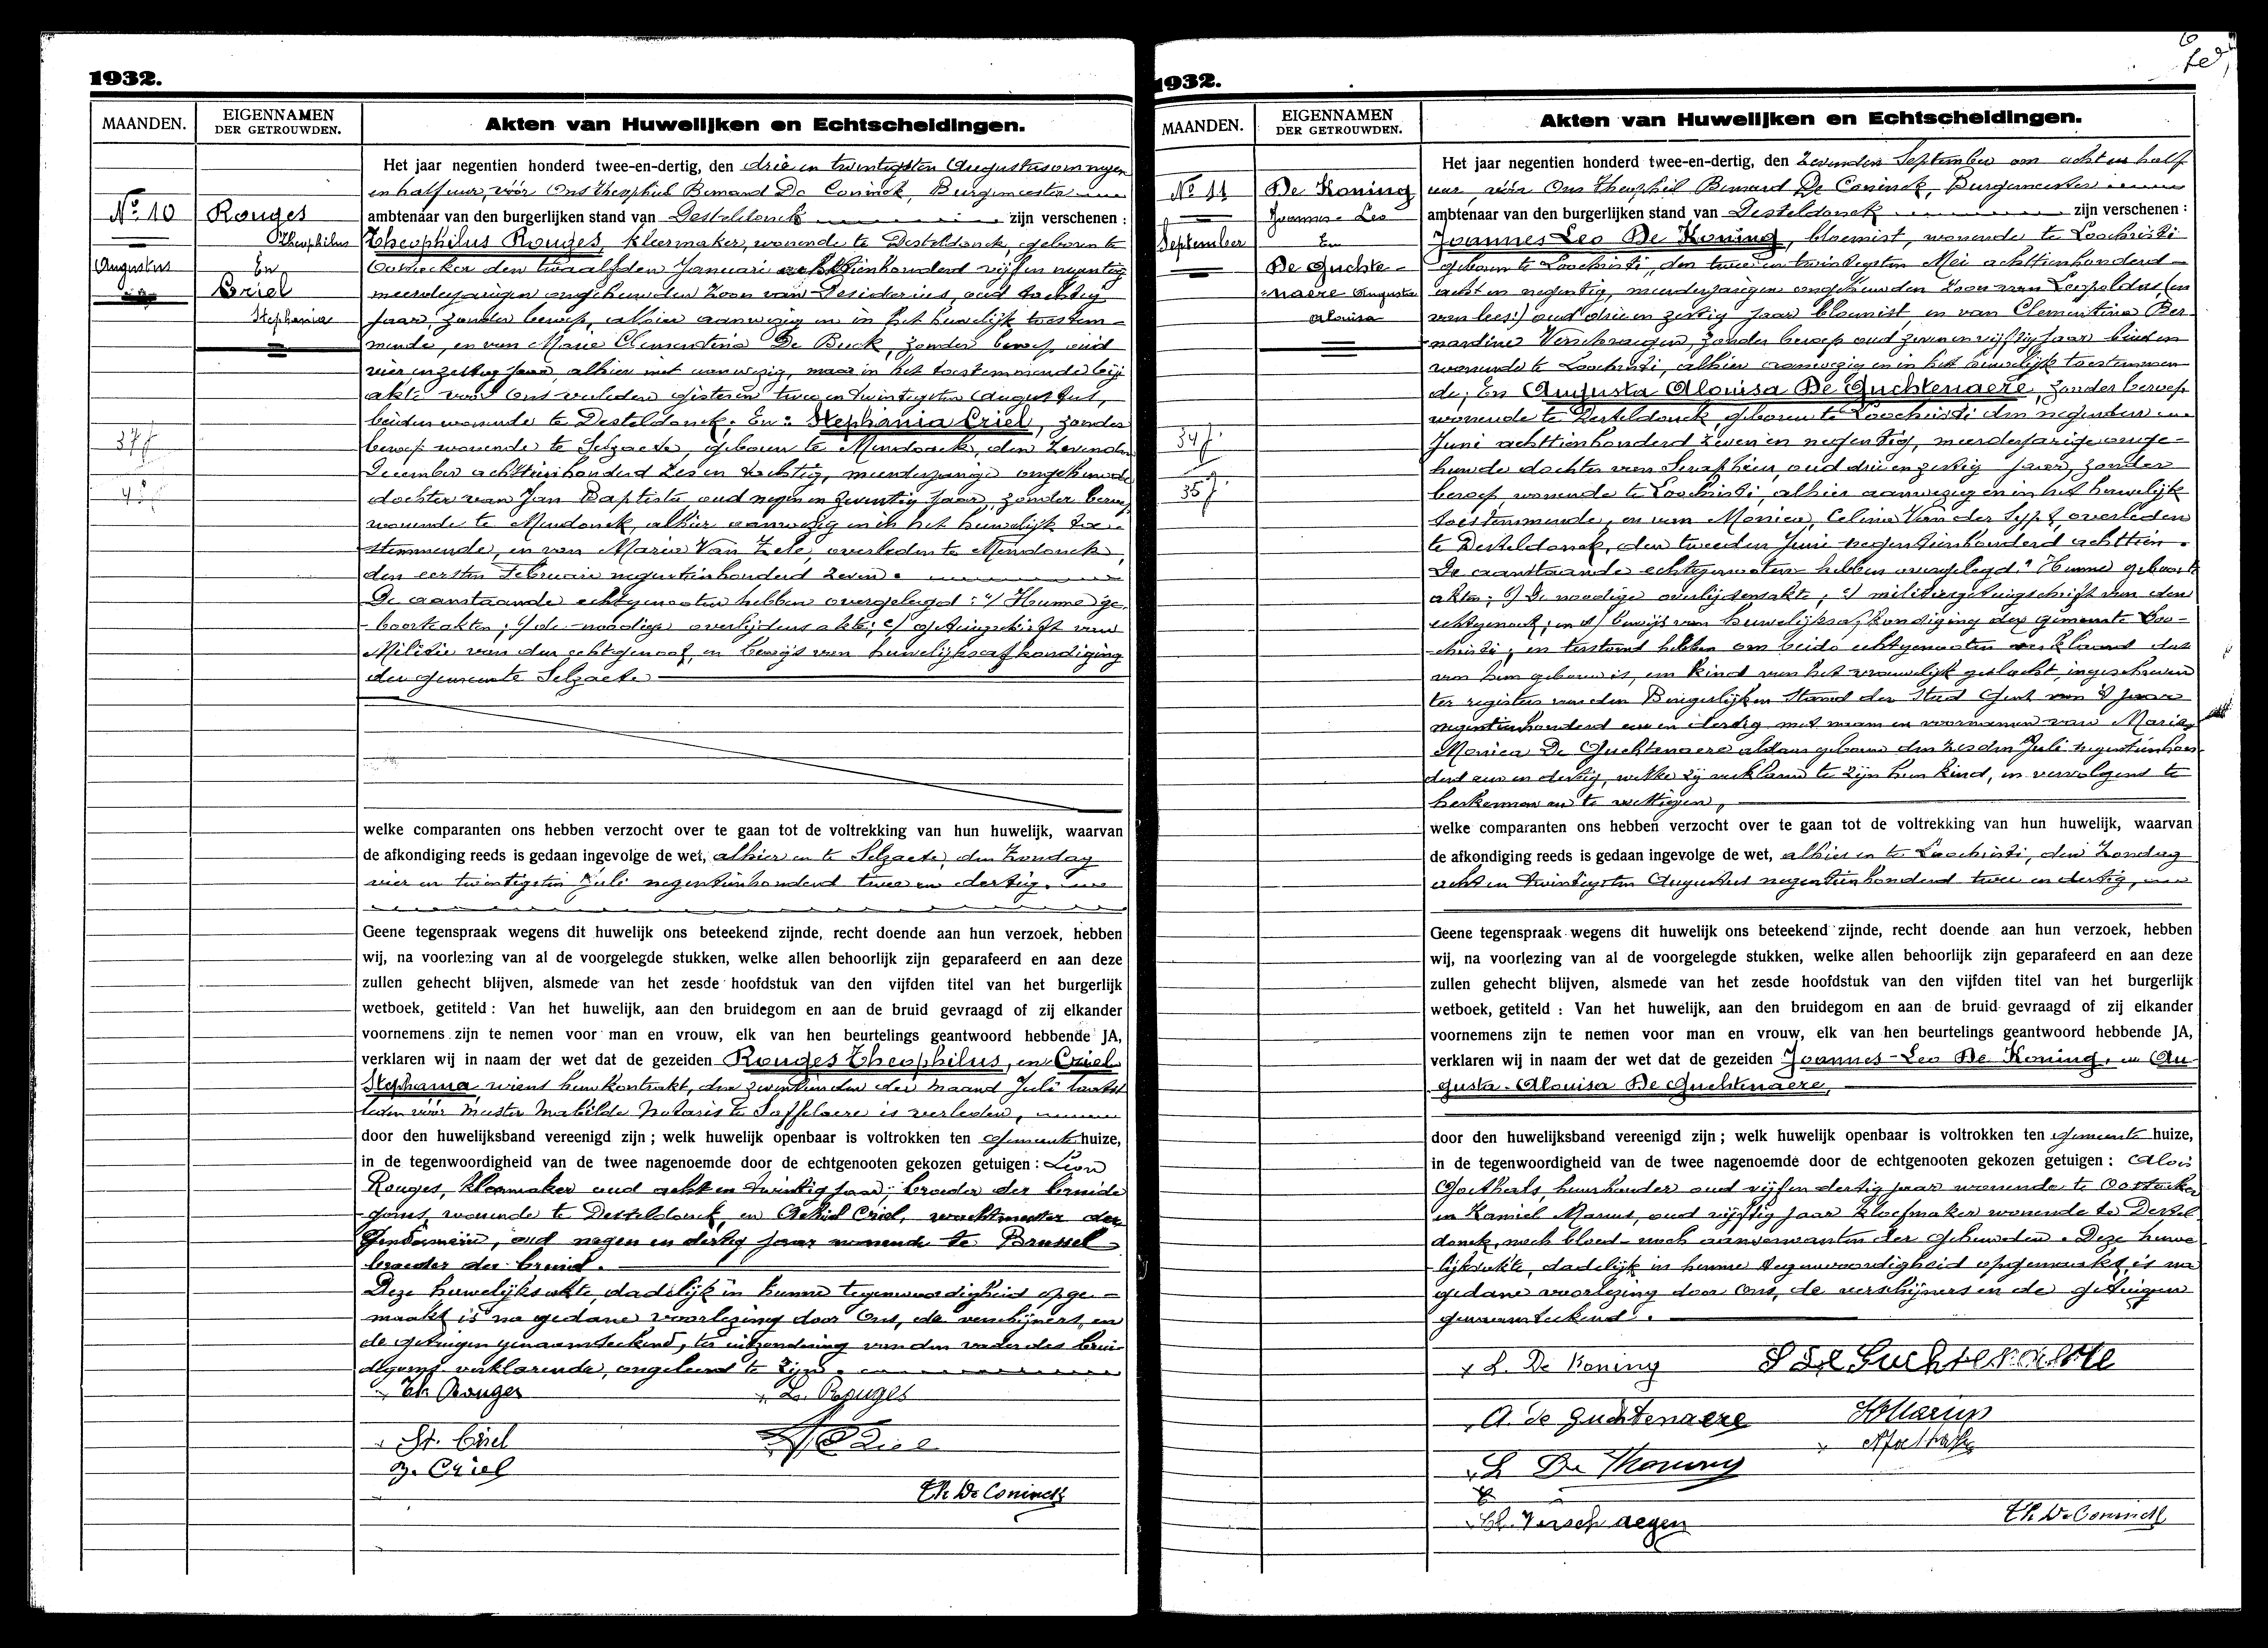 1932.
MAANDEN.
EIGENNAMEN
DER GETROUWDEN.
Akten van Huwelijken en Echtscheidingen.
No 10
Augustus
Rouges
Theophilus
En
Criel
Stephania
37 j
Het jaar negentien honderd twee-en-dertig, den drie en twintigsten Augustus om negen
en half uur, vóór Ons Theophiel Bernard De Coninck, Burgemeester
ambtenaar van den burgerlijken stand van Desteldonck zijn verschenen :
Theophilus Rouges, kleermaker, wonende te Desteldonck, geboren te
Oostacker den twaalfden Januari achttienhonderd vijf en negentig
meerderjarigen ongehuwden Zoon van Desiderius, oud tachtig
jaar, zonder beroep, alhier aanwezig en in het huwelijk toestem-
mende, en van Marie Clementina De Buck, zonder beroep oud
vier en zestig jaar, alhier niet aanwezig, maar in het toestemmende bij
akte voor Ons verleden gisteren twee en twintigsten Augustus,
beiden wonende te Desteldonck. En : Stephania Criel, zonder
beroep wonende te Selzaete, geboren te Mendonck, den Zevenden
December achttienhonderd zes en tachtig, meerderjarige ongehuwde
dochter van Jan Baptista oud negen en zeventig jaar, zonder beroep
wonende te Mendonck, alhier aanwezig en in het huwelijk toe-
stemmende, en van Marie Van Zele, overleden te Mendonck,
den eersten Februari negentienhonderd zeven.
De aanstaande echtgenooten hebben overgelegd : a/ Hunne ge-
boorteakten ; b/ de noodige overlijdens akte ; c/ getuigschrift van
Militie van den echtgenoot, en bewijs van huwelijksafkondiging
der gemeente Selzaete
welke comparanten ons hebben verzocht over te gaan tot de voltrekking van hun huwelijk, waarvan
de afkondiging reeds is gedaan ingevolge de wet, alhier en te Selzaete, den Zondag
vier en twintigsten Juli negentienhonderd twee en dertig.
Geene tegenspraak wegens dit huwelijk ons beteekend zijnde, recht doende aan hun verzoek, hebben
wij, na voorlezing van al de voorgelegde stukken, welke allen behoorlijk zijn geparafeerd en aan deze
zullen gehecht blijven, alsmede van het zesde hoofdstuk van den vijfden titel van het burgerlijk
wetboek, getiteld : Van het huwelijk, aan den bruidegom en aan de bruid gevraagd of zij elkander
voornemens zijn te nemen voor man en vrouw, elk van hen beurtelings geantwoord hebbende JA,
verklaren wij in naam der wet dat de gezeiden Rouges Theophilus, en Criel
Stephania wiens huwkontrakt, den der maand Juli laatst
leden vóór Meester Matthilde Notaris te Saffelaere is verleden,
door den huwelijksband vereenigd zijn ; welk huwelijk openbaar is voltrokken ten Gemeentehuize,
in de tegenwoordigheid van de twee nagenoemde door de echtgenooten gekozen getuigen : Leon
Rouges, kleermaker oud acht en twintig jaar, broeder der bruide
goms, wonende te Desteldonck, en Achiel Criel, wachtmeester der
Gendarmerie, oud negen en dertig jaar wonende te Brussel
broeder der bruid.
Deze huwelijksakte, dadelijk in hunne tegenwoordigheid opge-
maakt is na gedane voorlezing door Ons, de verschijners, en
de getuigen genaamteekend, ter uitzondering van den vader des brui-
degoms verklarende, ongeleerd te zijn.
Th Rouges
L. Rouges
St. Criel
A Criel
J. Criel
Th De Coninck
1932.
MAANDEN.
EIGENNAMEN
DER GETROUWDEN.
Akten van Huwelijken en Echtscheidingen.
No 11
September
De Koning
Joannes-Leo
En
De Guchte-
naere Augusta
Alouisa
34 j.
35 j.
Het jaar negentien honderd twee-en-dertig, den zevenden September om acht en half
uur, vóór Ons Theophiel Bernard De Coninck, Burgemeester
ambtenaar van den burgerlijken stand van Desteldonck zijn verschenen :
Joannes Leo De Koning, bloemist, wonende te Loochristi
geboren te Loochristi, den twee en twintigsten Mei achttienhonderd
acht en negentig, meerderjarigen ongehuwden Zoon van Leopoldus (en
van lees:) oud drie en zestig jaar bloemist, en van Clementina Ber-
nardine Verschraegen, zonder beroep oud zeven en vijftig jaar beiden
wonende te Loochristi, alhier aanwezig en in het huwelijk toestemmen
de ; En Augusta Alouisa De Guchtenaere, zonder beroep
wonende te Desteldonck, geboren te Loochristi den negenden
Juni achttienhonderd zeven en negentig, meerderjarige onge-
huwde dochter van Seraphien, oud drie en zestig jaar, zonder
beroep, wonende te Loochristi, alhier aanwezig en in het huwelijk
toestemmende, en van Monica, Celina Van der Sypt, overleden
te Desteldonck, den tweeden Juni negentienhonderd achttien.
De aanstaande echtgenooten hebben overgelegd : a/ Hunne geboorte
akten ; b/ De noodige overlijdensakte ; c/ militiegetuigschrift van den
echtgenoot, en d/ bewijs van huwelijksafkondiging der gemeente Loo-
christi ; en terstond hebben ons beide echtgenooten verklaard dat
van hun geboren is, een kind van het vrouwelijk geslacht, ingeschreven
ter registers van den Burgerlijken Stand der Stad Gent van 't jaar
negentienhonderd een en dertig met naam en voornamen van Maria
Monica De Guchtenaere aldaar geboren den zesden Juli negentienhon-
derd een en dertig, welke zij verklaren te zijn hun kind, en vervolgens te
herkennen en te wettigen,
welke comparanten ons hebben verzocht over te gaan tot de voltrekking van hun huwelijk, waarvan
de afkondiging reeds is gedaan ingevolge de wet, alhier en te Loochristi, den Zondag
acht en twintigsten Augustus negentienhonderd twee en dertig,
Geene tegenspraak wegens dit huwelijk ons beteekend zijnde, recht doende aan hun verzoek, hebben
wij, na voorlezing van al de voorgelegde stukken, welke allen behoorlijk zijn geparafeerd en aan deze
zullen gehecht blijven, alsmede van het zesde hoofdstuk van den vijfden titel van het burgerlijk
wetboek, getiteld : Van het huwelijk, aan den bruidegom en aan de bruid gevraagd of zij elkander
voornemens zijn te nemen voor man en vrouw, elk van hen beurtelings geantwoord hebbende JA,
verklaren wij in naam der wet dat de gezeiden Joannes-Leo De Koning, en Au-
gusta-Alouisa De Guchtenaere,
door den huwelijksband vereenigd zijn ; welk huwelijk openbaar is voltrokken ten Gemeentehuize,
in de tegenwoordigheid van de twee nagenoemde door de echtgenooten gekozen getuigen : Alois
Goethals, huurhouder oud vijf en dertig jaar wonende te Oostacker
en Kamiel Marius, oud vijftig jaar kloefmaker wonende te Destel
donck, noch bloed- noch aanverwanten der gehuwden. Deze huwe-
lijksakte, dadelijk in hunne tegenwoordigheid opgemaakt, is na
gedane voorlezing door Ons, de verschijners en de getuigen
genaamteekend.
L. De Koning
S De Guchtenaere
A. De Guchtenaere
K Marius
A Goethals
L De Koning
Cl. Verschraegen
Th De Coninck